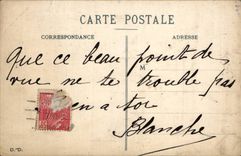 CARTE POSTALE
CORRESPONDANCE
ADRESSE
Que ce beau point de
M
vue ne te trouble pas
en a toi
Blanche
D.-D.